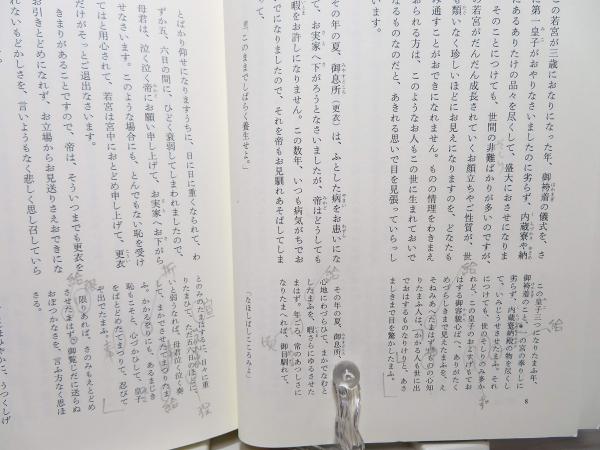 この若宮が三歳におなりになった年、御袴着の儀式を、さ
に第一皇子がおやりなさいましたのに劣らず、内蔵寮や納
にあるありたけの品々を尽くして、盛大におさせになりま
そのことにつけても、世間の非難ばかりが多いのですが、
の若宮がだんだん成長されていくお顔立ちやご性質が、世
も類いなく珍しいほどにお見えになりますのを、どなたも
み通すことがおできになれません。ものの情理をわきまえ
おられる方は、このようなお人もこの世に生まれておいで
なるものなのだと、あきれる思いで目を見張っていらっし
ます。
その年の夏、御息所（更衣）は、ふとした病をお患いにな
て、お実家へ下がろうとなさいましたが、帝はどうしても
暇をお許しになりません。この数年、いつも病気がちでお
でになりましたので、それを帝もお見馴れあそばしてしま
て、
「このままでしばらく養生せよ」
この皇子三つになりたまふ年、
御袴着のこと、一の宮の奉りしに
劣らず、内蔵寮納殿の物を尽くし
て、いみじうせさせたまふ。それ
につけても、世のそしりのみ多か
れど、この皇子のおよすげもてお
はする御容貌心ばへ、ありがたく
めづらしきまで見えたまふを、え
そねみあへたまはず。ものの心知
りたまふ人は、かかる人も世に出
でおはするものなりけりと、あさ
ましきまで目を驚かしたまふ。
その年の夏、御息所、
心地にわづらひて、まかでなむと
したまふを、暇さらにゆるさせた
まはず。年ごろ、常のあつしさに
なりたまへれば、御目馴れて、
「なほしばしこころみよ」
8
とばかり仰せになりますうちに、日に日に重くなられて、わ
ずか五、六日の間に、ひどく衰弱してしまわれましたので、
母君は、泣く泣く帝にお願い申し上げて、お実家へお下がら
せなさいます。このような場合にも、とんでもない恥を受け
てはと用心されて、若宮は宮中におとどめ申し上げて、更衣
だけがそっとご退出なさいます。
きまりがあることですので、帝は、そういつまでも更衣を
お引きとどめになれず、お立場からお見送りさえおできにな
れないもどかしさを、言いようもなく悲しく思し召していら
とのみのたまはするに、日々に重
りたまひて、ただ五六日のほどに、
いと弱うなれば、母君泣く泣く奏
して、まかでさせたてまつりたま
ふ。かかるをりにも、あるまじき
恥もこそと、心づかひして、皇子
をばとどめたてまつりて、忍びて
ぞ出でたまふ。
限りあれば、さのみもえとどめ
させたまはず、御覧じだに送らぬ
おぼつかなさを、言ふ方なく思ほ
さる。